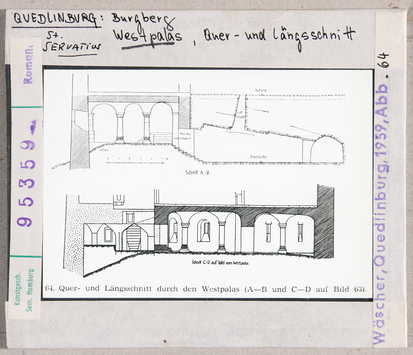 QUEDLINBURG: Burgberg
St. SERVATIUS
Westpalas, Quer- und Längsschnitt
Romani
95359
Kunstgesch.
Sem. Hamburg
Schnitt A-B
Schnitt C-D auf Tafel vom Westpalas
64. Quer- und Längsschnitt durch den Westpalas (A—B und C—D auf Bild 63).
Wäscher, Quedlinburg, 1959, Abb. 64